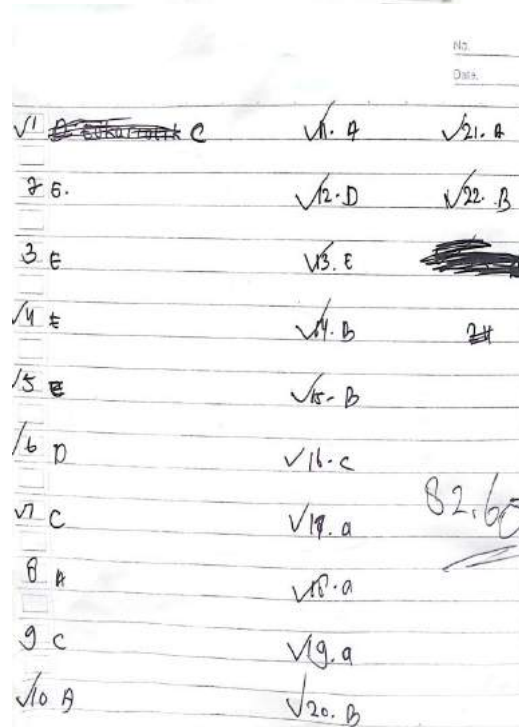 No.
Date.
√1 C
2 E.
3 E
√4 E
√5 E
√6 D
√7 C
8 A
9 C
√10 A
√11. A
√12. D
√13. E
√14. B
√15. B
√16. C
√17. a
√18. a
√19. a
√20. B
√21. A
√22. B
82,60